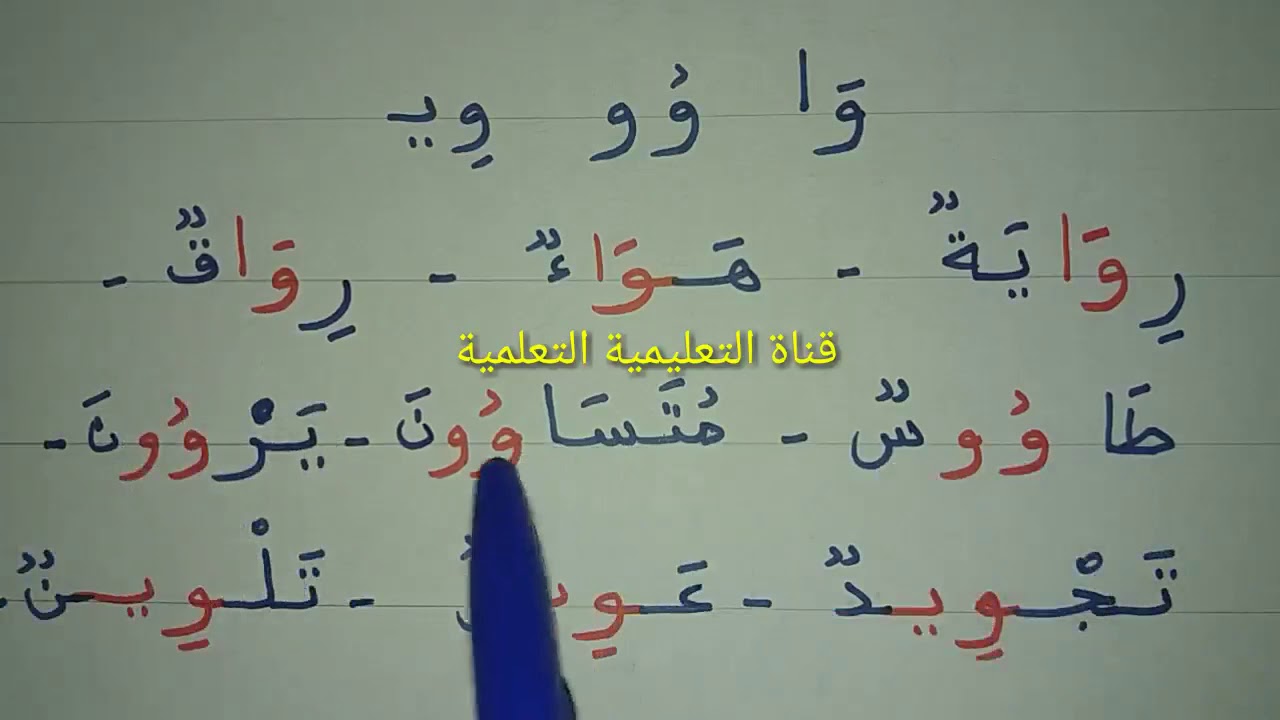 وَا وُو وِيـ
رِوَايَةٌ - هَـوَاءٌ - رِوَاقٌ -
قناة التعليمية التعلمية
طَاوُوسٌ - مُتَسَاوُونَ - يَرْوُونَ -
تَجْـوِيدٌ - تَلْـوِيـنٌ -